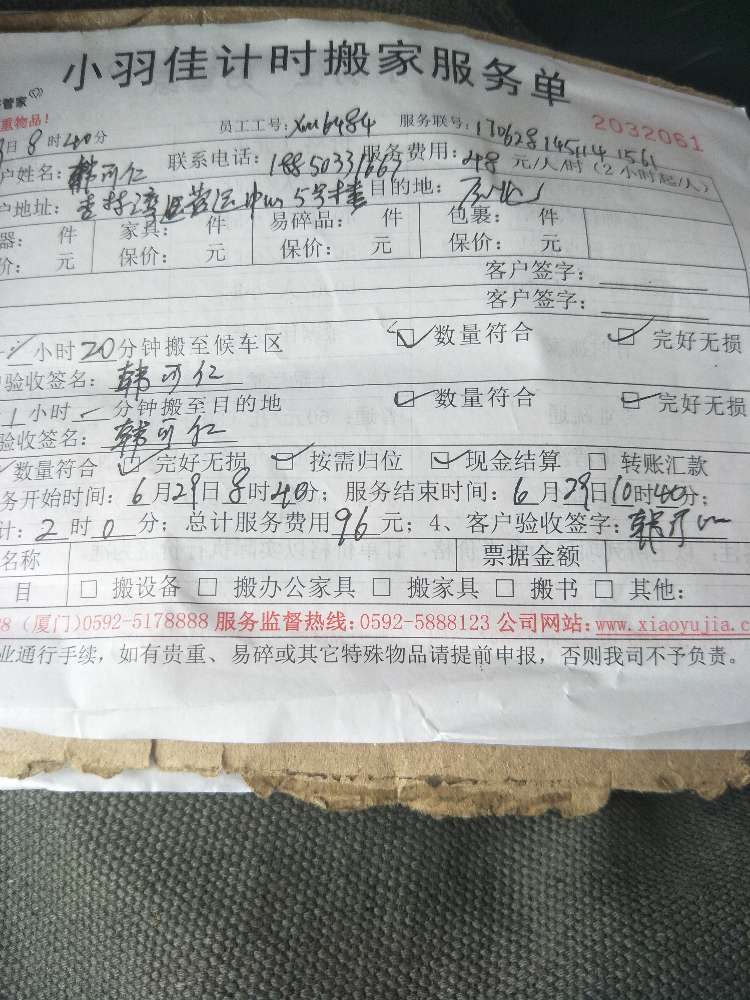 小羽佳计时搬家服务单
管家
重物品! 员工工号: Xm6484 服务联号: 1706281454141561 2032061
日8时40分
户姓名: 韩可仁 联系电话: 18850331667 服务费用: 48 元/人/时(2小时起/人)
户地址: 运营中心5号楼 目的地:
器: 件 家具: 件 易碎品: 件 包裹: 件
价: 元 保价: 元 保价: 元 保价: 元
客户签字:
客户签字:
小时20分钟搬至候车区 ☑数量符合 ☑完好无损
验收签名: 韩可仁 ☑数量符合 ☑完好无损
1小时 分钟搬至目的地
验收签名: 韩可仁
数量符合 ☑完好无损 ☑按需归位 ☑现金结算 □转账汇款
务开始时间: 6月29日8时40分; 服务结束时间: 6月29日10时40分;
计: 2时0分; 总计服务费用96元; 4、客户验收签字: 韩可仁
名称 票据金额
目 □搬设备 □搬办公家具 □搬家具 □搬书 □其他:
88(厦门)0592-5178888 服务监督热线: 0592-5888123 公司网站: www.xiaoyujia.c
业通行手续, 如有贵重、易碎或其它特殊物品请提前申报, 否则我司不予负责。